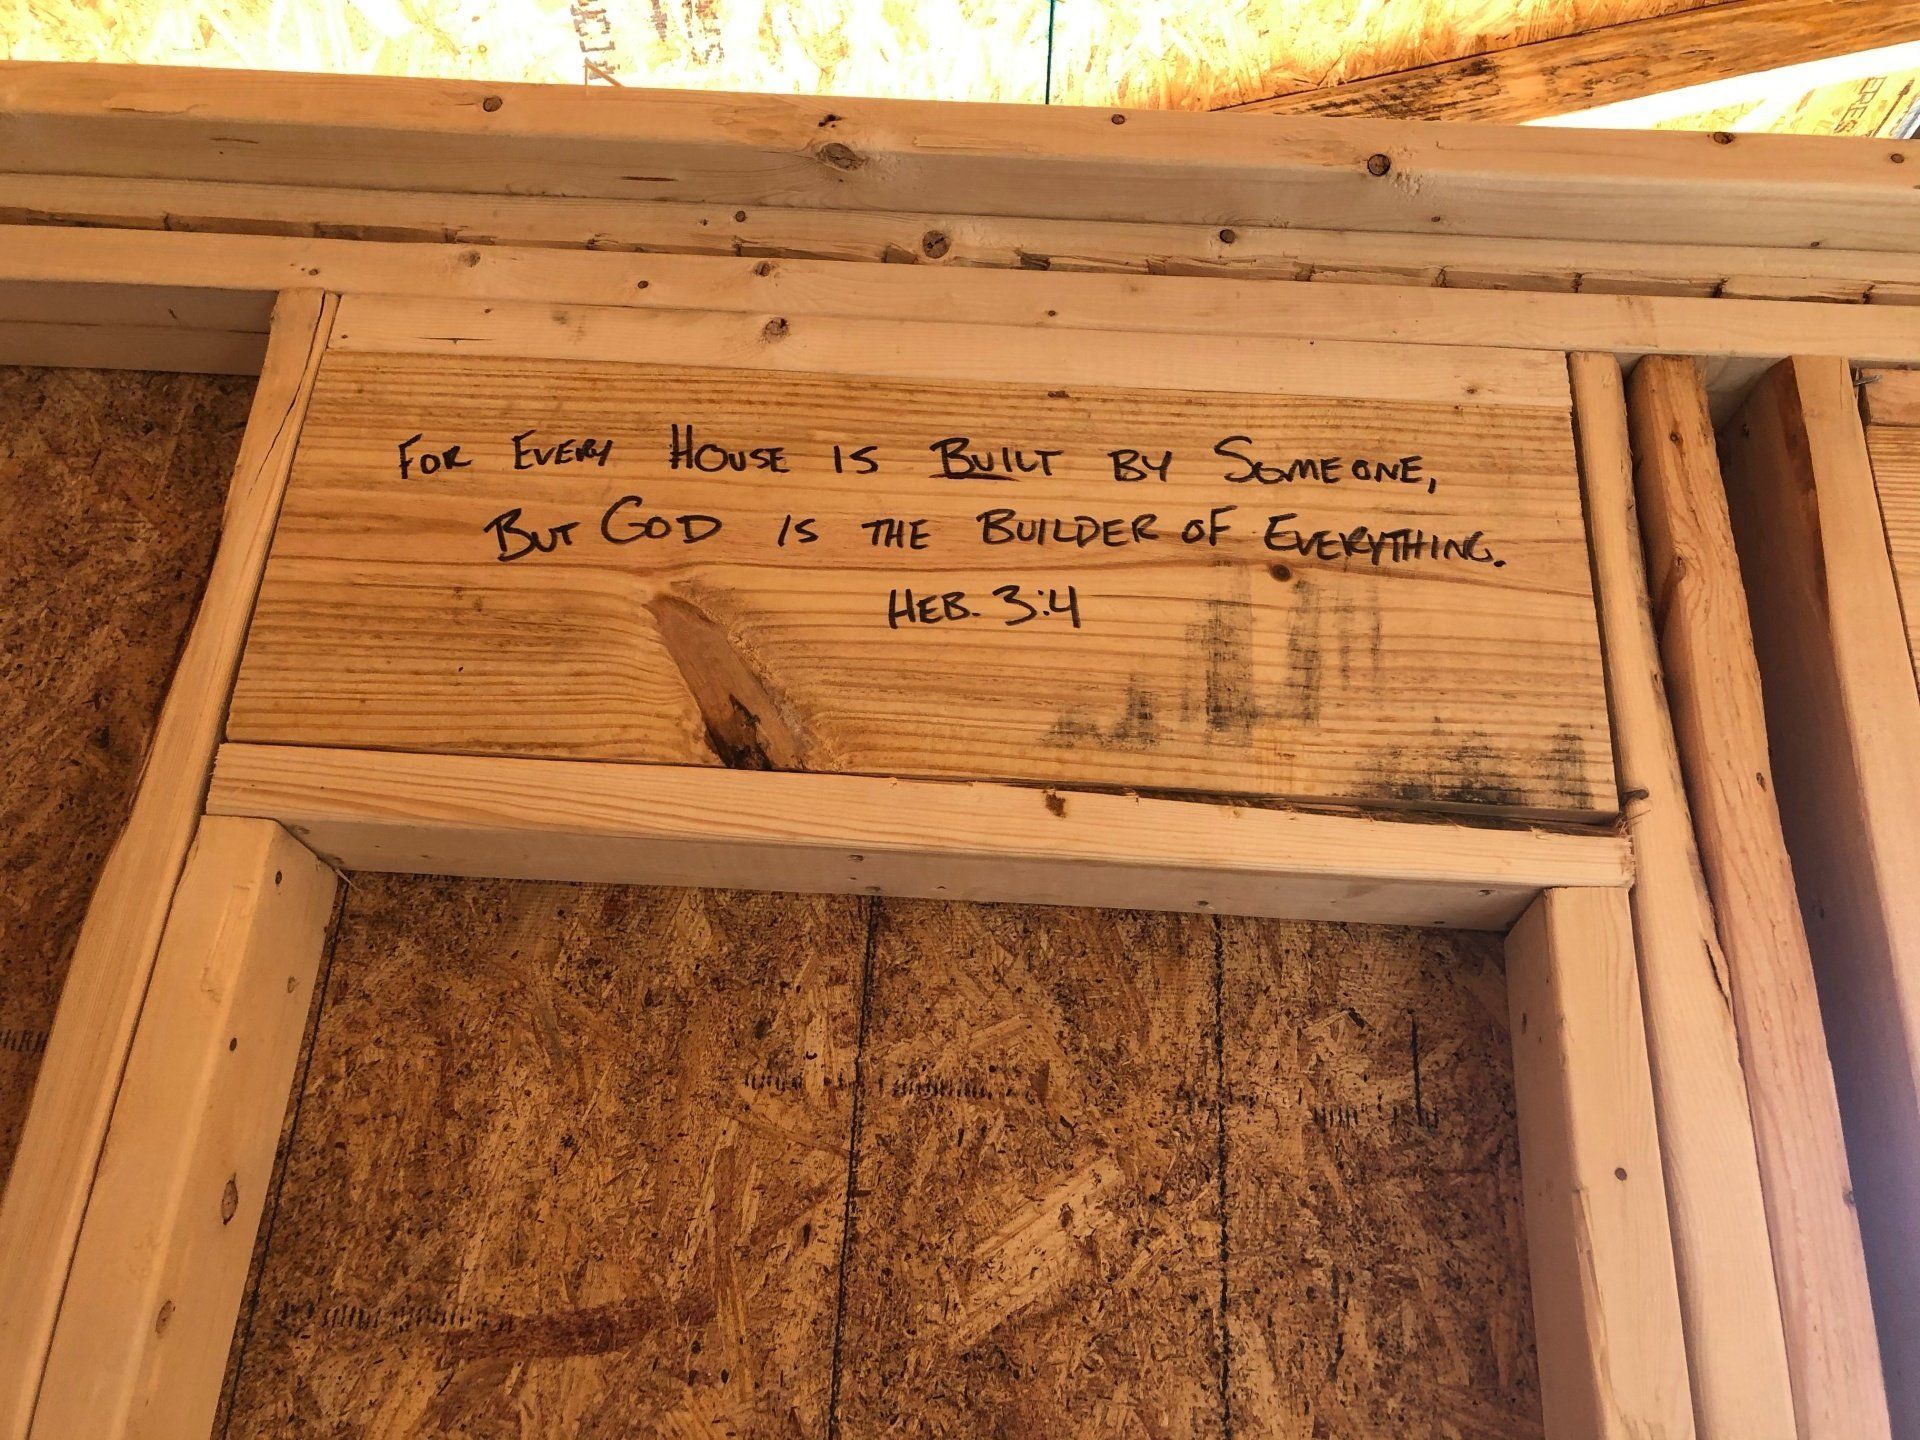 For Every House is Built by Someone,
But God is the Builder of Everything.
Heb. 3:4